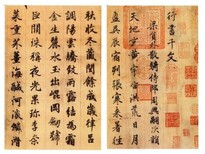 行書千文
梁員外散騎侍郎周興嗣次韻
天地玄黃宇宙洪荒日月
盈昃辰宿列張寒來暑往
秋收冬藏閏餘成歲律呂
調陽雲騰致雨露結為霜
金生麗水玉出崑岡劍號
巨闕珠稱夜光果珍李柰
菜重芥薑海鹹河淡鱗潛